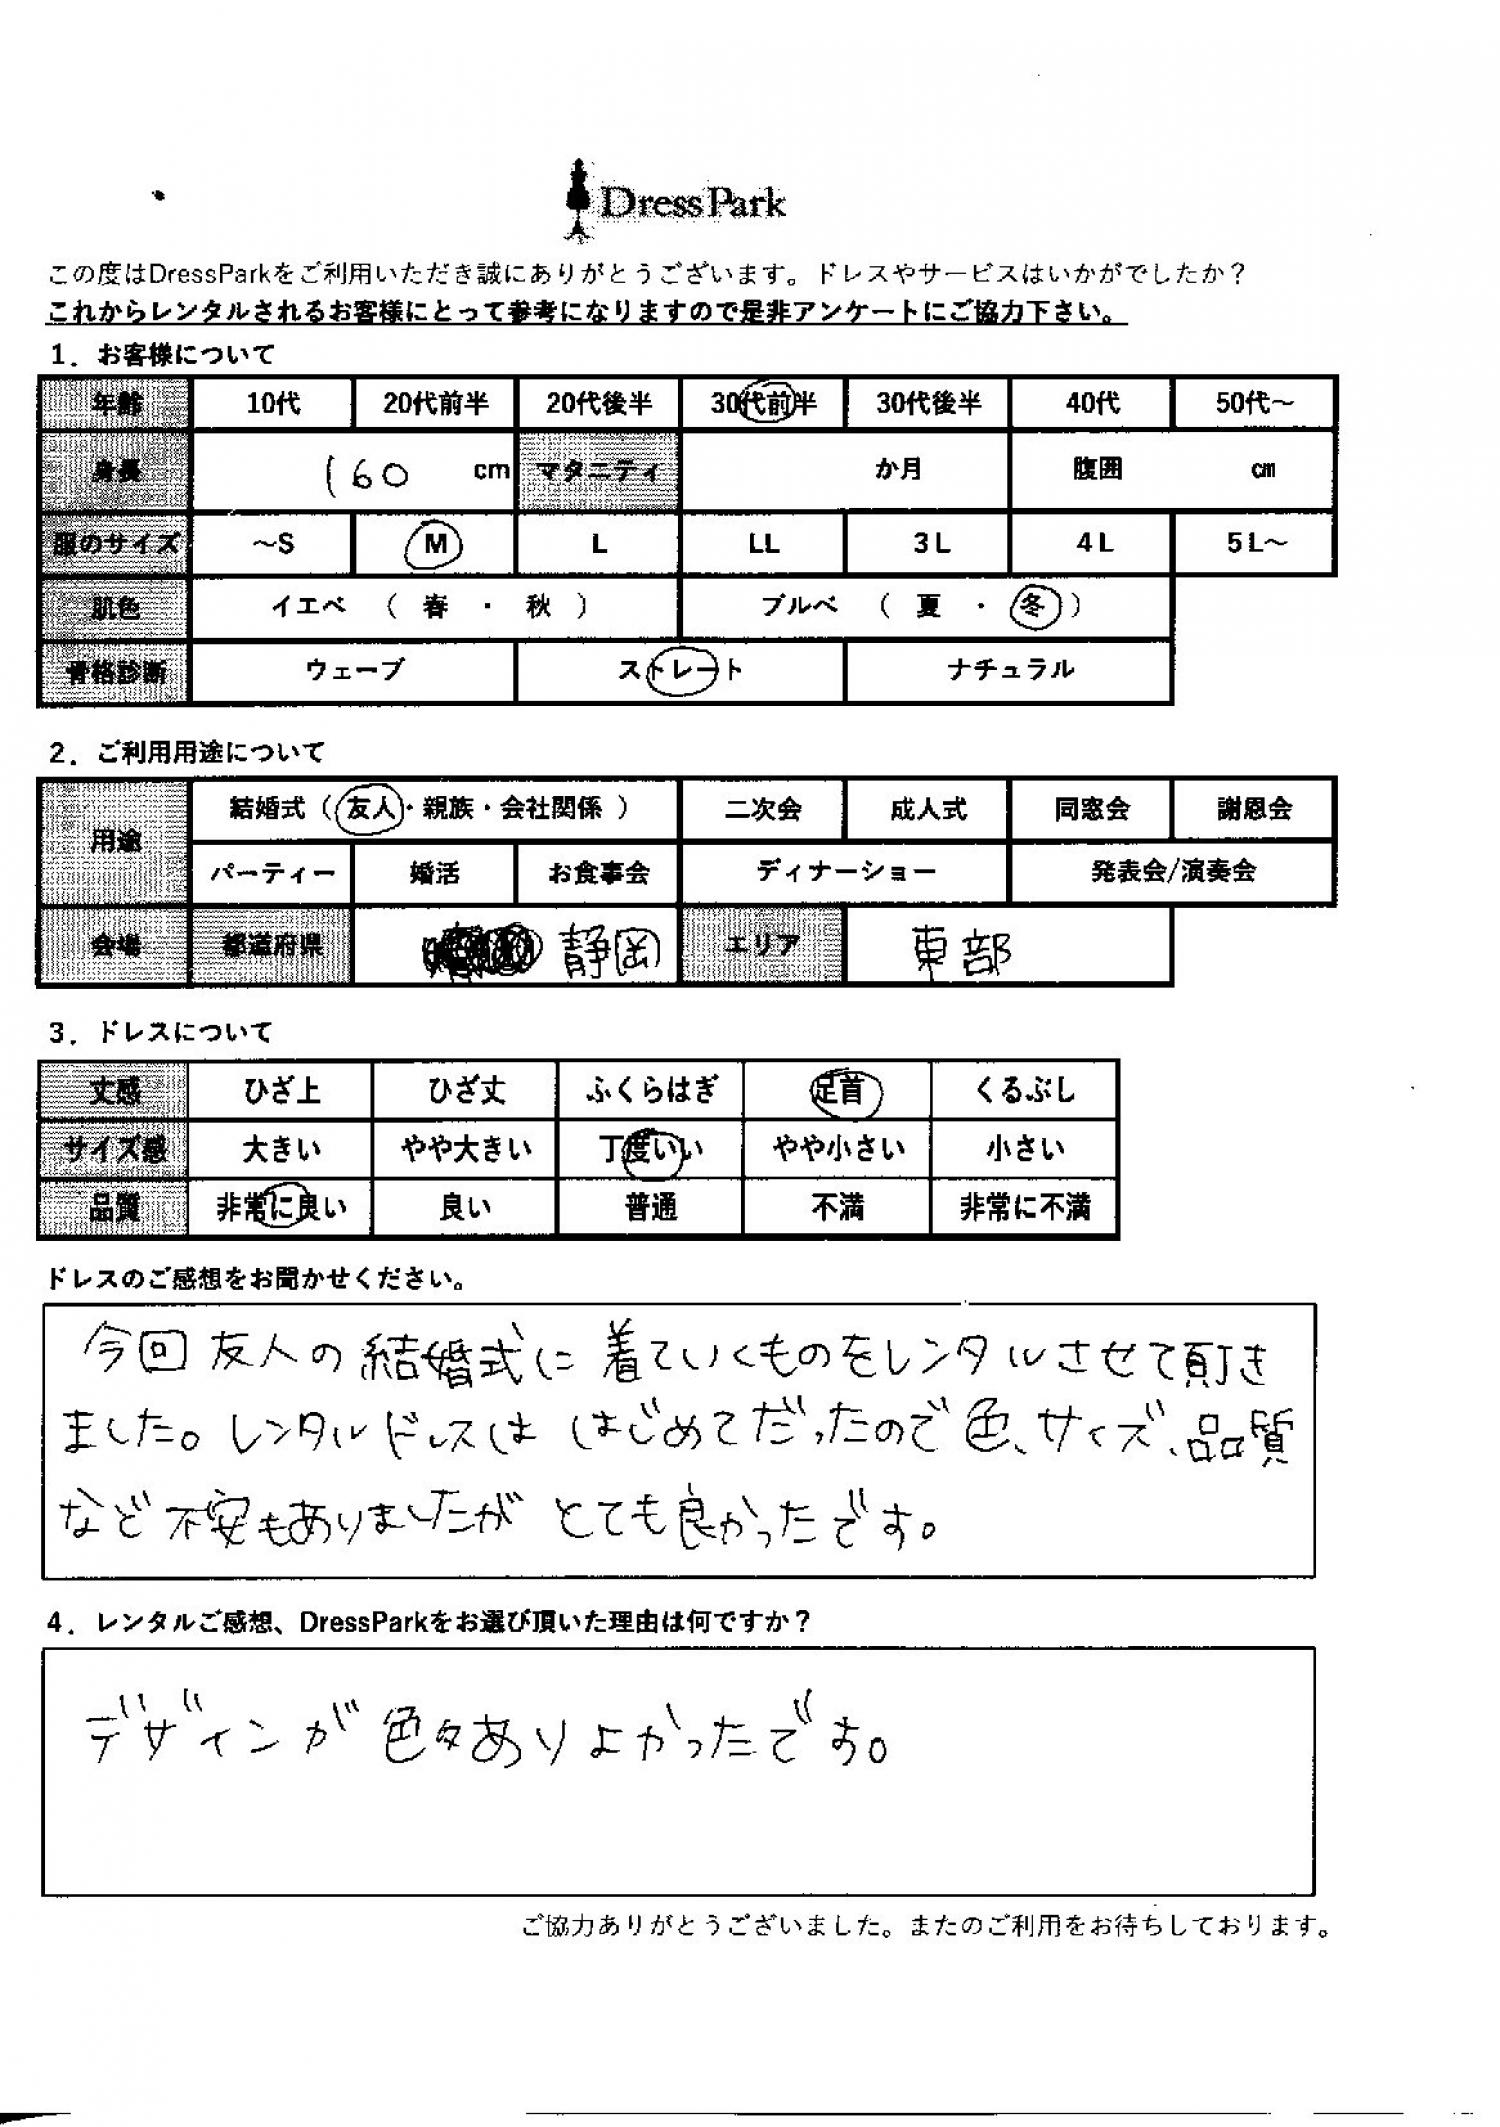 DressPark
この度はDressParkをご利用いただき誠にありがとうございます。ドレスやサービスはいかがでしたか？
これからレンタルされるお客様にとって参考になりますので是非アンケートにご協力下さい。
1．お客様について
年齢 10代 20代前半 20代後半 30代前半 30代後半 40代 50代～
身長 160 cm マタニティ か月 腹囲 cm
服のサイズ ～S M L LL 3L 4L 5L～
肌色 イエベ （ 春 ・ 秋 ） ブルベ （ 夏 ・ 冬 ）
骨格診断 ウェーブ ストレート ナチュラル
2．ご利用用途について
用途 結婚式（ 友人・親族・会社関係 ） 二次会 成人式 同窓会 謝恩会
パーティー 婚活 お食事会 ディナーショー 発表会/演奏会
会場 都道府県 静岡 エリア 東部
3．ドレスについて
丈感 ひざ上 ひざ丈 ふくらはぎ 足首 くるぶし
サイズ感 大きい やや大きい 丁度いい やや小さい 小さい
品質 非常に良い 良い 普通 不満 非常に不満
ドレスのご感想をお聞かせください。
今回友人の結婚式に着ていくものをレンタルさせて頂き
ました。レンタルドレスははじめてだったので色、サイズ、品質
など不安もありましたがとても良かったです。
4．レンタルご感想、DressParkをお選び頂いた理由は何ですか？
デザインが色々ありよかったです。
ご協力ありがとうございました。またのご利用をお待ちしております。